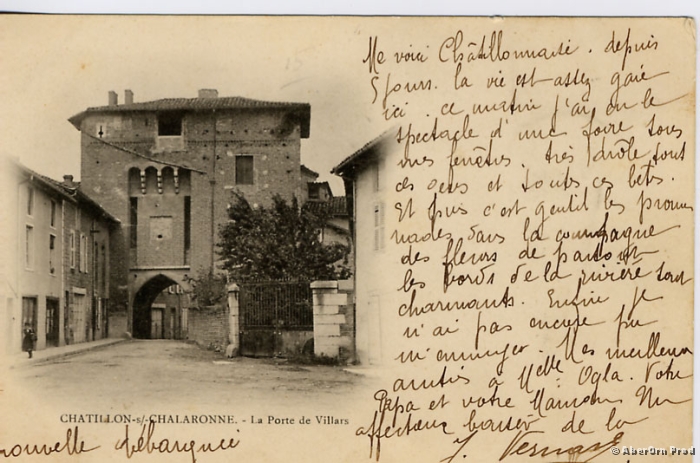 Me voici Châtillonnaise. depuis
5 jours. la vie est assez gaie
ici. ce matin j'ai eu le
spectacle d'une foire sous
mes fenêtres. très drôle tout
ces gens et toutes ces bêtes.
Et puis c'est gentil les prome
nades dans la campagne
des fleurs de partout
les bords de la rivière sont
charmants. Enfin je
n'ai pas encore pu
m'ennuyer. Mes meilleures
amitiés à Melle Olga. Votre
Papa et votre Maman Un
affectueux bonsoir de la
nouvelle débarquée
J.
CHATILLON-s/-CHALARONNE. - La Porte de Villars
© AberOrn Prad